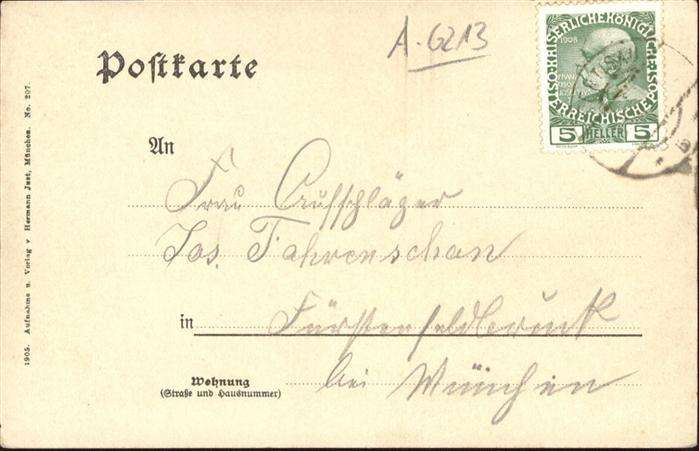 A-6213
Postkarte
K. K. OST. KAISERLICHE KÖNIGLICHE
1908
ÖSTERREICHISCHE POST
5 HELLER 5
An
Frau Aufschläger
Jos. Fahrenschon
in Fürstenfeldbruck
Wohnung
(Straße und Hausnummer)
bei München
1905. Aufnahme u. Verlag v. Hermann Jast, München. No. 207.